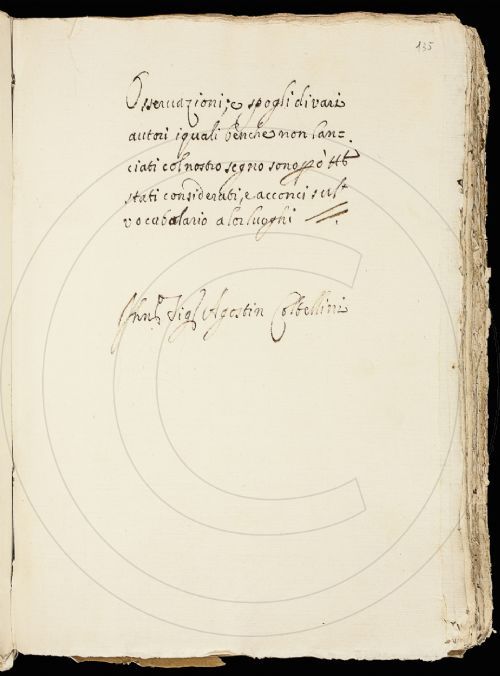 135
Osseruazioni, e spogli di vari
autori i quali benche non lan=
ciati col nostro segno sono però
stati considerati, e acconci sul
vocabolario a lor luoghi
Sig.